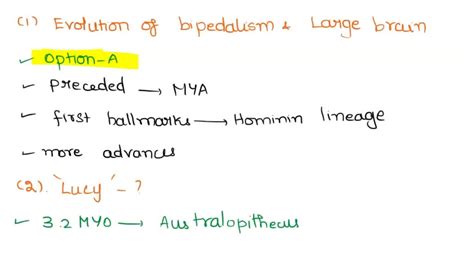 (1) Evolution of bipedalism & Large brain
✓ Option-A
✓ preceded → MYA
✓ first hallmarks → Hominin lineage
✓ more advances
(2). 'Lucy' - ?
✓ 3.2 MYO → Australopithecus